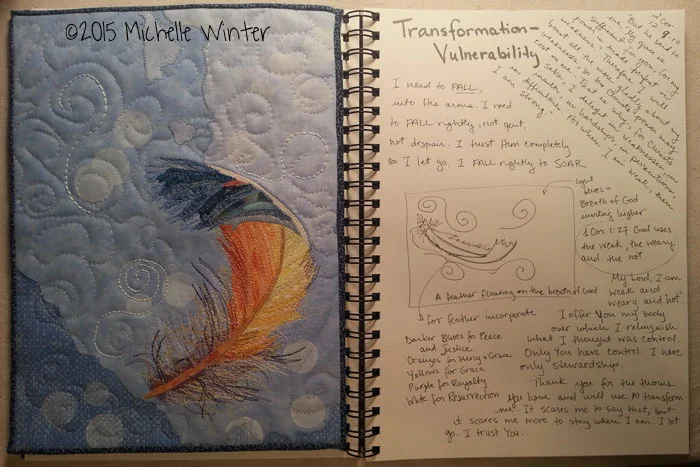 ©2015 Michelle Winter
Transformation-
Vulnerability
2 Cor.
12:9,10
But he said to
me, "My grace is
sufficient for you, for my
power is made perfect in
weakness." Therefore I will
boast all the more gladly about my
weaknesses, so that Christ's power may
rest on me. That is why, for Christ's
sake, I delight in weaknesses, in
insults, in hardships, in persecutions,
in difficulties. For when I am weak, then
I am strong.
I need to FALL,
into the arms. I need
to FALL rightly, not quit,
not despair. I trust Him completely
so I let go. I FALL rightly to SOAR
light
blues =
Breath of God
inviting higher
1 Cor 1:27 God uses
the weak, the weary
and the not.
A feather floating on the breath of God
for feather incorporate
Darker Blues for Peace
and Justice
Oranges for Mercy + Grace
Yellows for Grace
Purple for Royalty
White for Resurrection
My Lord, I am
weak and
weary and "not"
I offer You my body
over which I relinquish
what I thought was control.
Only You have control. I have
only stewardship.
Thank you for the
You have and will use to transform
me. It scares me to say that, but
it scares me more to stay where I am. I let
go. I trust You.